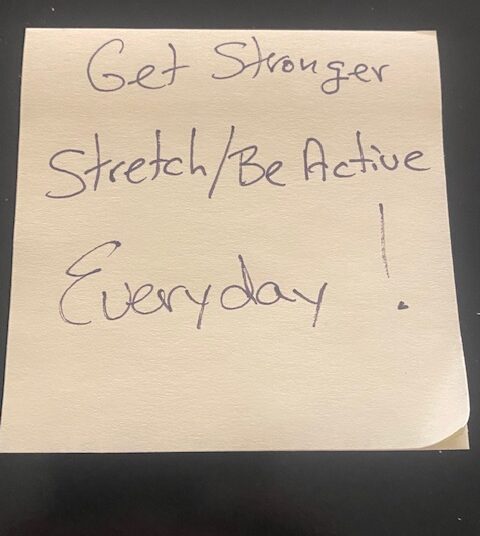 Get Stronger
Stretch/Be Active
Everyday !